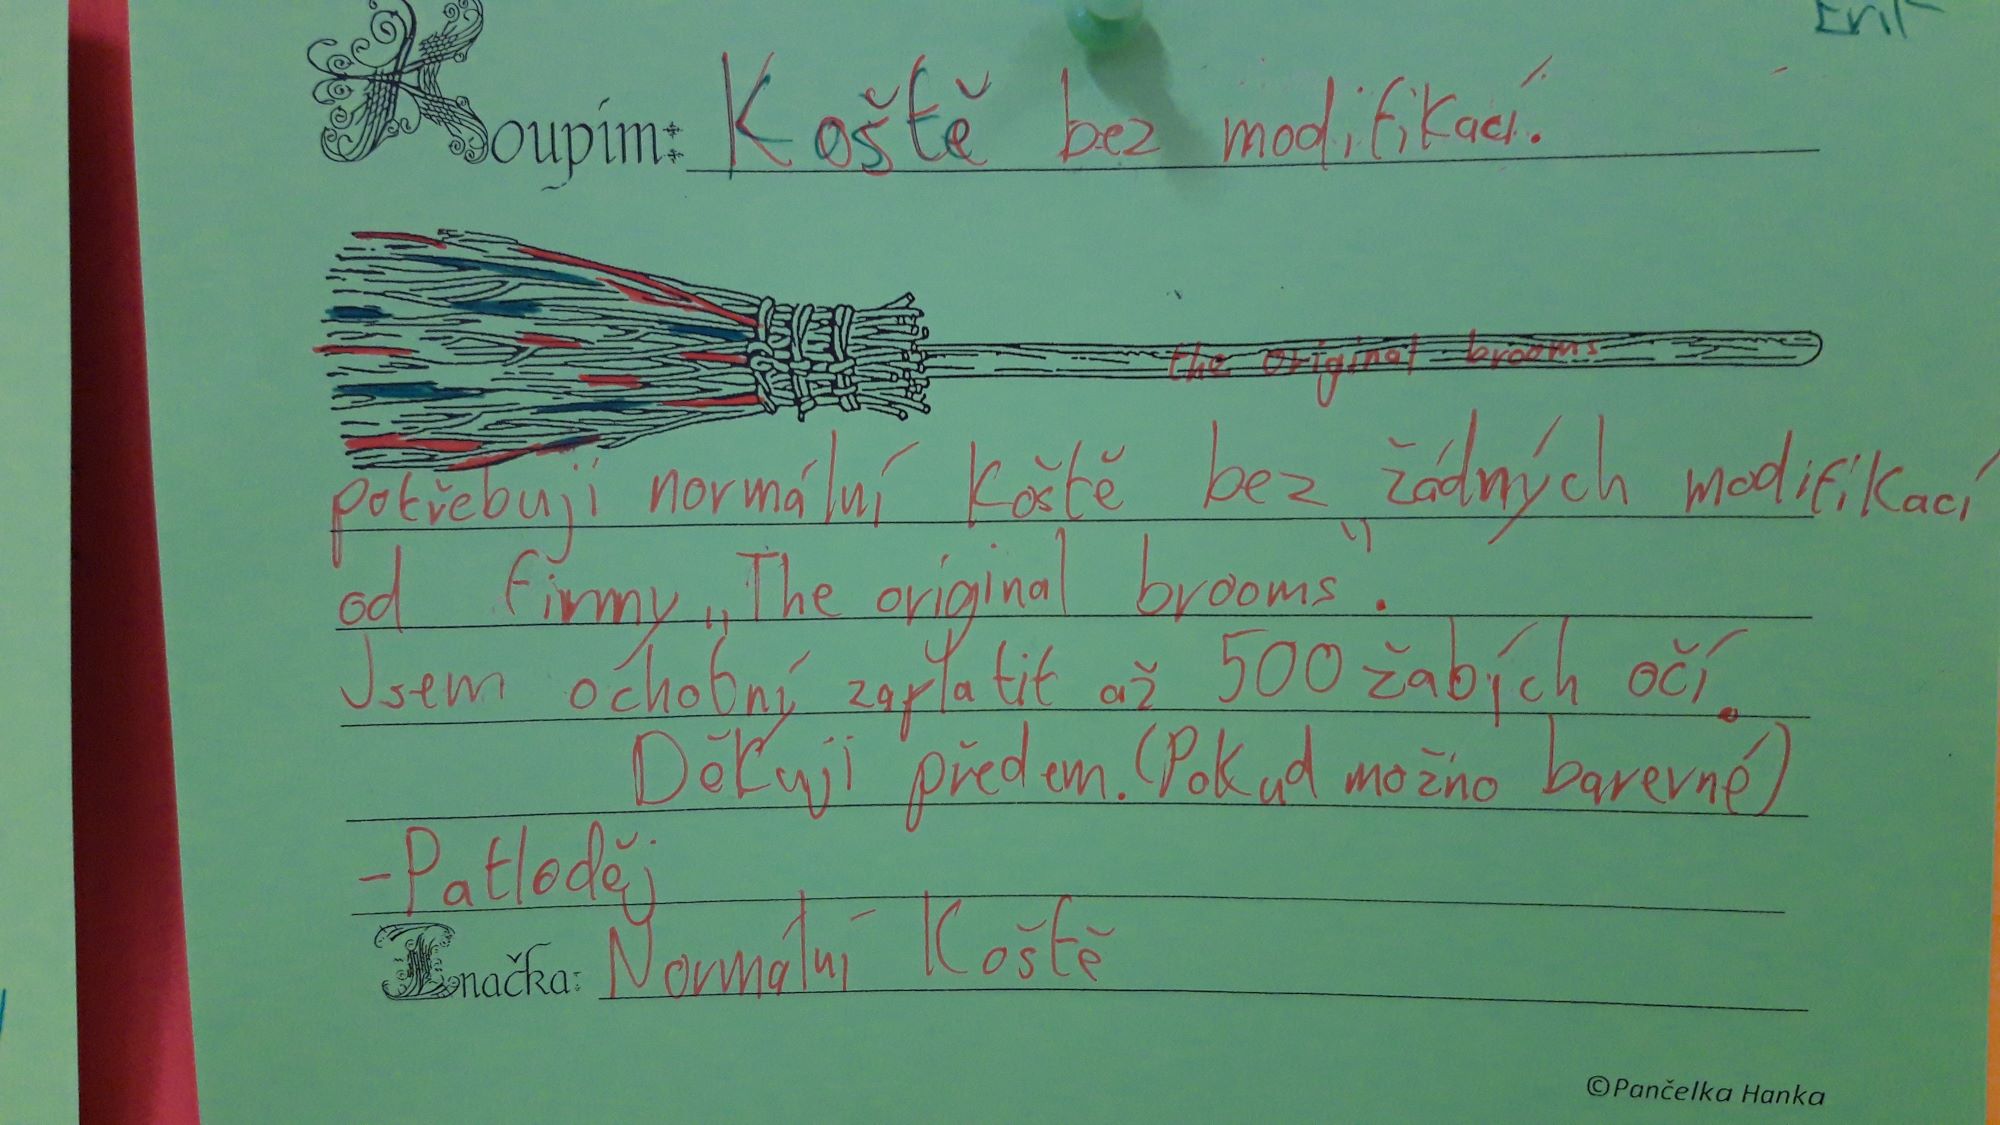 Koupím: Koště bez modifikací.
the original brooms
potřebuji normální koště bez žádných modifikací
od firmy „The original brooms".
Jsem ochobný zaplatit až 500 žabých očí.
Děkuji předem. (Pokud možno barevné)
-Patloděj
Značka: Normální Koště
©Pančelka Hanka